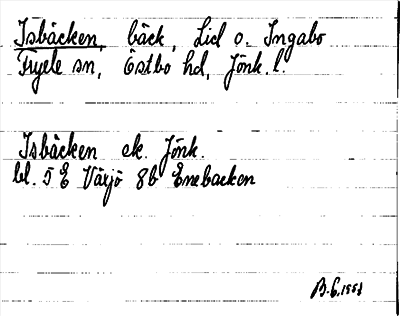 Isbäcken, bäck, Lid o. Ingabo
Tryele sn, Östbo hd, Jönk. l.
Isbäcken ek. Jönk.
bl. 5 E Växjö 8b Enebacken